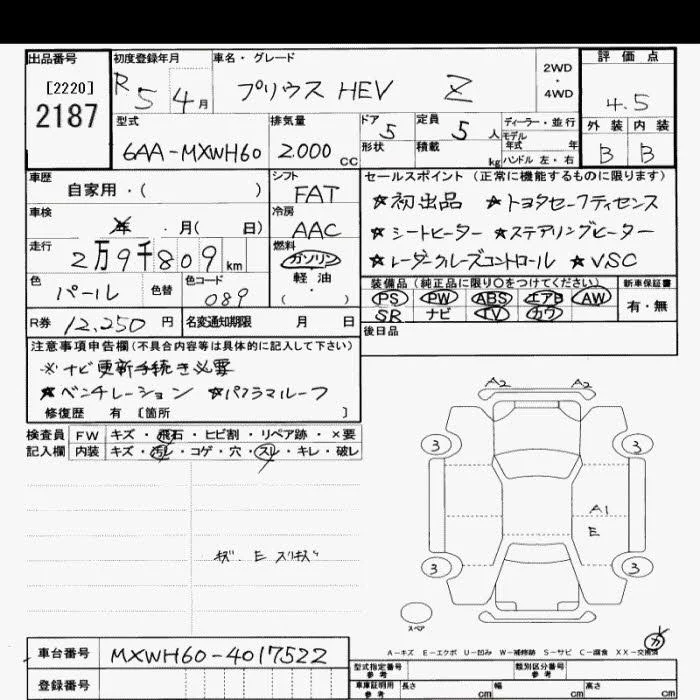 出品番号 [2220] 2187
初度登録年月 R5 4月
車名・グレード プリウス HEV Z
2WD・4WD
評価点 4.5
外装 B 内装 B
型式 6AA-MXWH60
排気量 2.000 cc
ドア 5 形状
定員 5人 積載 kg
ディーラー・並行
モデル年式 年
ハンドル 左・右
車歴 自家用・( )
シフト FAT
車検 年・月( 日)
冷房 AAC
走行 2万9千809km
燃料 ガソリン 軽油・( )
色 パール 色替
色コード 089
R券 12,250円
名変通知期限 月 日
セールスポイント(正常に機能するものに限ります)
☆初出品 ☆トヨタセーフティセンス
☆シートヒーター ☆ステアリングヒーター
☆レーダークルーズコントロール ☆VSC
装備品(純正品に限り○をつけてください)
新車保証書
PS PW ABS エアB AW
有・無
SR ナビ TV カワ
後日品
注意事項申告欄(不具合内容等は具体的に記入して下さい)
※ナビ更新手続き必要
☆ベンチレーション ☆パノラマルーフ
修復歴 有 〔箇所 〕
検査員 FW キズ・飛石・ヒビ割・リペア跡・×要
記入欄 内装 キズ・汚レ・コゲ・穴・スレ・キレ・破レ
キズ、E スリキズ
A2 A2
3 3
A1
E
3 3
スペア
カ
A-キズ E-エクボ U-凹み W-補修跡 S-サビ C-腐食 XX-交換済
車台番号 MXWH60-4017522
登録番号
型式指定番号 参考
類別区分番号 参考
車庫証明用 参考 長さ cm 幅 cm 高さ cm